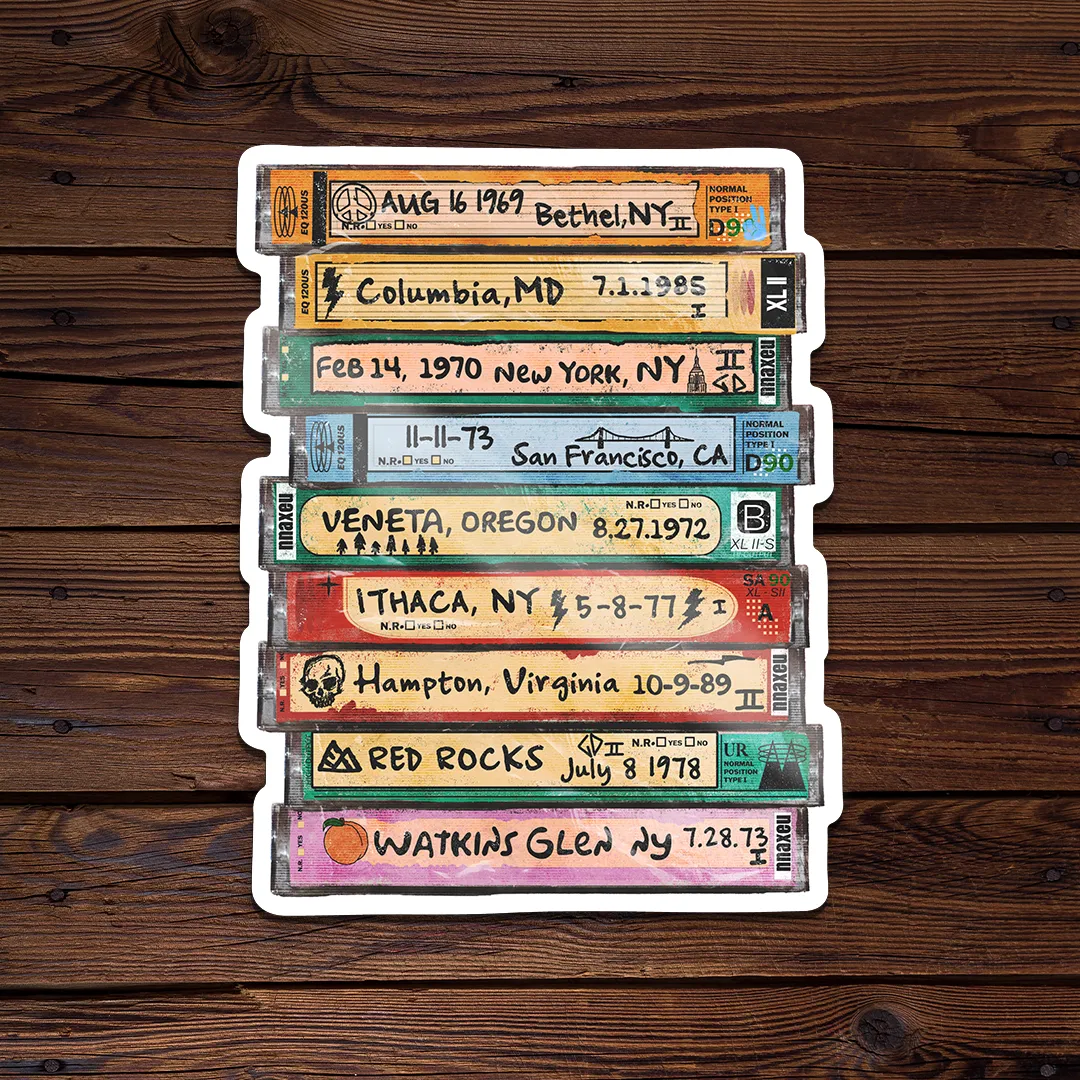 EQ 120US AUG 16 1969 Bethel, NY II
N.R. YES NO
NORMAL
POSITION
TYPE I
D90
EQ 120US Columbia, MD 7.1.1985 I XL II
FEB 14, 1970 NEW YORK, NY II nnaxeu
EQ 120US 11-11-73 San Francisco, CA
N.R. YES NO
NORMAL
POSITION
TYPE I
D90
nnaxeu VENETA, OREGON 8.27.1972
N.R. YES NO
B
XL II-S
ITHACA, NY 5-8-77 I
N.R. YES NO
SA 90
XL - SII
A
N.R. YES NO Hampton, Virginia 10-9-89 II nnaxeu
RED ROCKS July 8 1978 II
N.R. YES NO
UR
NORMAL
POSITION
TYPE I
N.R. YES NO WATKINS GLEN NY 7.28.73 I nnaxeu